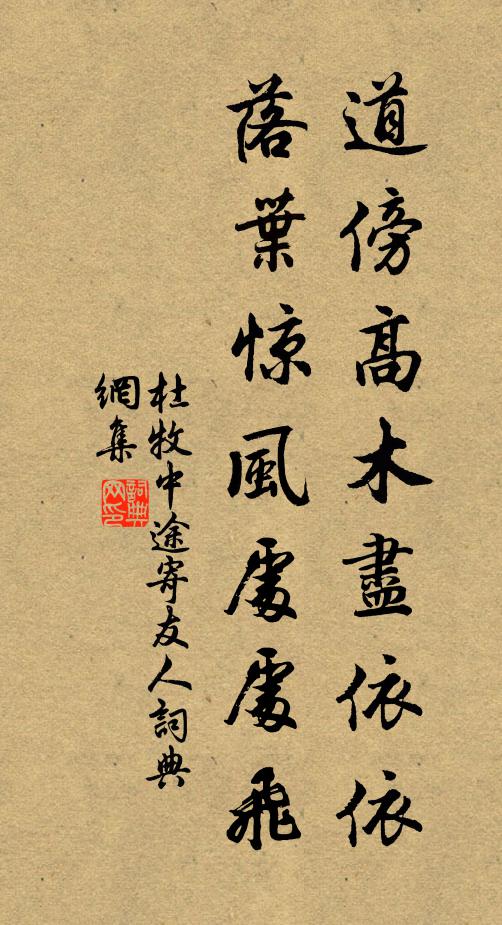 道傍高木盡依依
落葉惊風處處飛
杜牧中途寄友人詞典
網集
詞典
网印